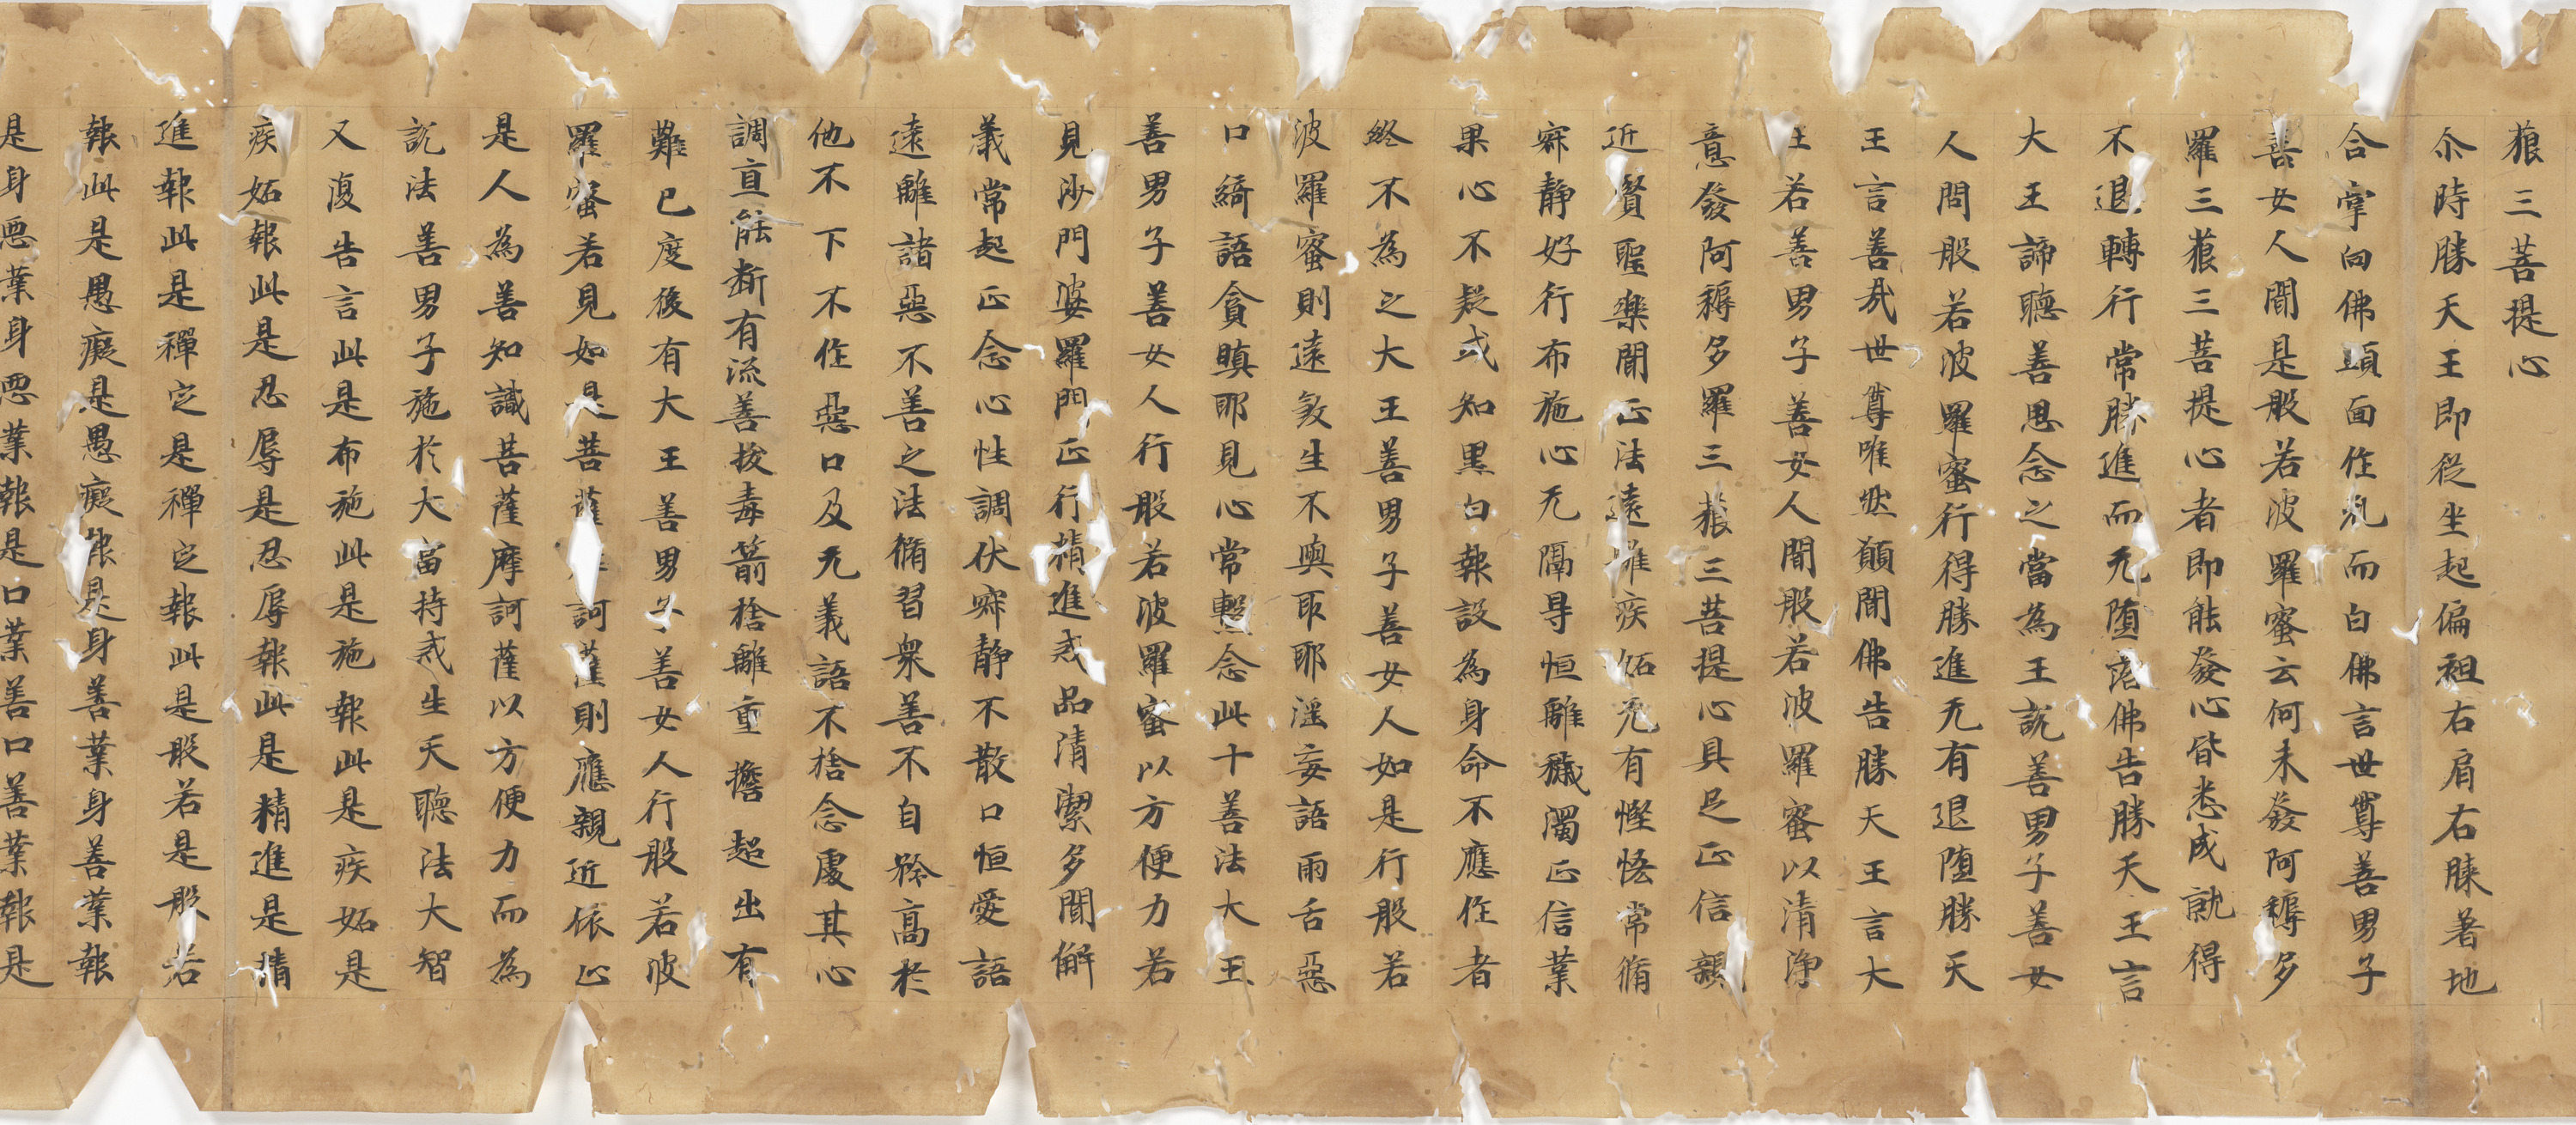 藐三菩提心
尒時勝天王即從坐起偏袒右肩右膝著地
合掌向佛頭面作礼而白佛言世尊善男子
善女人聞是般若波羅蜜云何未發阿耨多
羅三藐三菩提心者即能發心皆悉成就得
不退轉行常勝進而无堕落佛告勝天王言
大王諦聽善思念之當為王說善男子善女
人問般若波羅蜜行得勝進无有退堕勝天
王言善哉世尊唯然願聞佛告勝天王言大
王若善男子善女人聞般若波羅蜜以清淨
意發阿耨多羅三藐三菩提心具足正信親
近賢聖樂聞正法遠離疾妬无有慳悋常脩
寂靜好行布施心无隔㝵恒離穢濁正信業
果心不疑或知黑白報設為身命不應作者
終不為之大王善男子善女人如是行般若
波羅蜜則遠煞生不與取邪婬妄語兩舌惡
口綺語貪瞋邪見心常繫念此十善法大王
善男子善女人行般若波羅蜜以方便力若
見沙門婆羅門正行精進戒品清潔多聞解
義常起正念心性調伏寂靜不散口恒愛語
遠離諸惡不善之法脩習衆善不自矜高於
他不下不作惡口及无義語不捨念處其心
調直能斷有流善拔毒箭捨離重擔超出有
難已度後有大王善男子善女人行般若波
羅蜜若見如是菩薩摩訶薩則應親近依止
是人為善知識菩薩摩訶薩以方便力而為
說法善男子施於大富持戒生天聽法大智
又復告言此是布施此是施報此是疾妬是
疾妬報此是忍辱是忍辱報此是精進是精
進報此是禪定是禪定報此是般若是般若
報此是愚癡是愚癡報是身善業身善業報
是身惡業身惡業報是口業善口善業報是